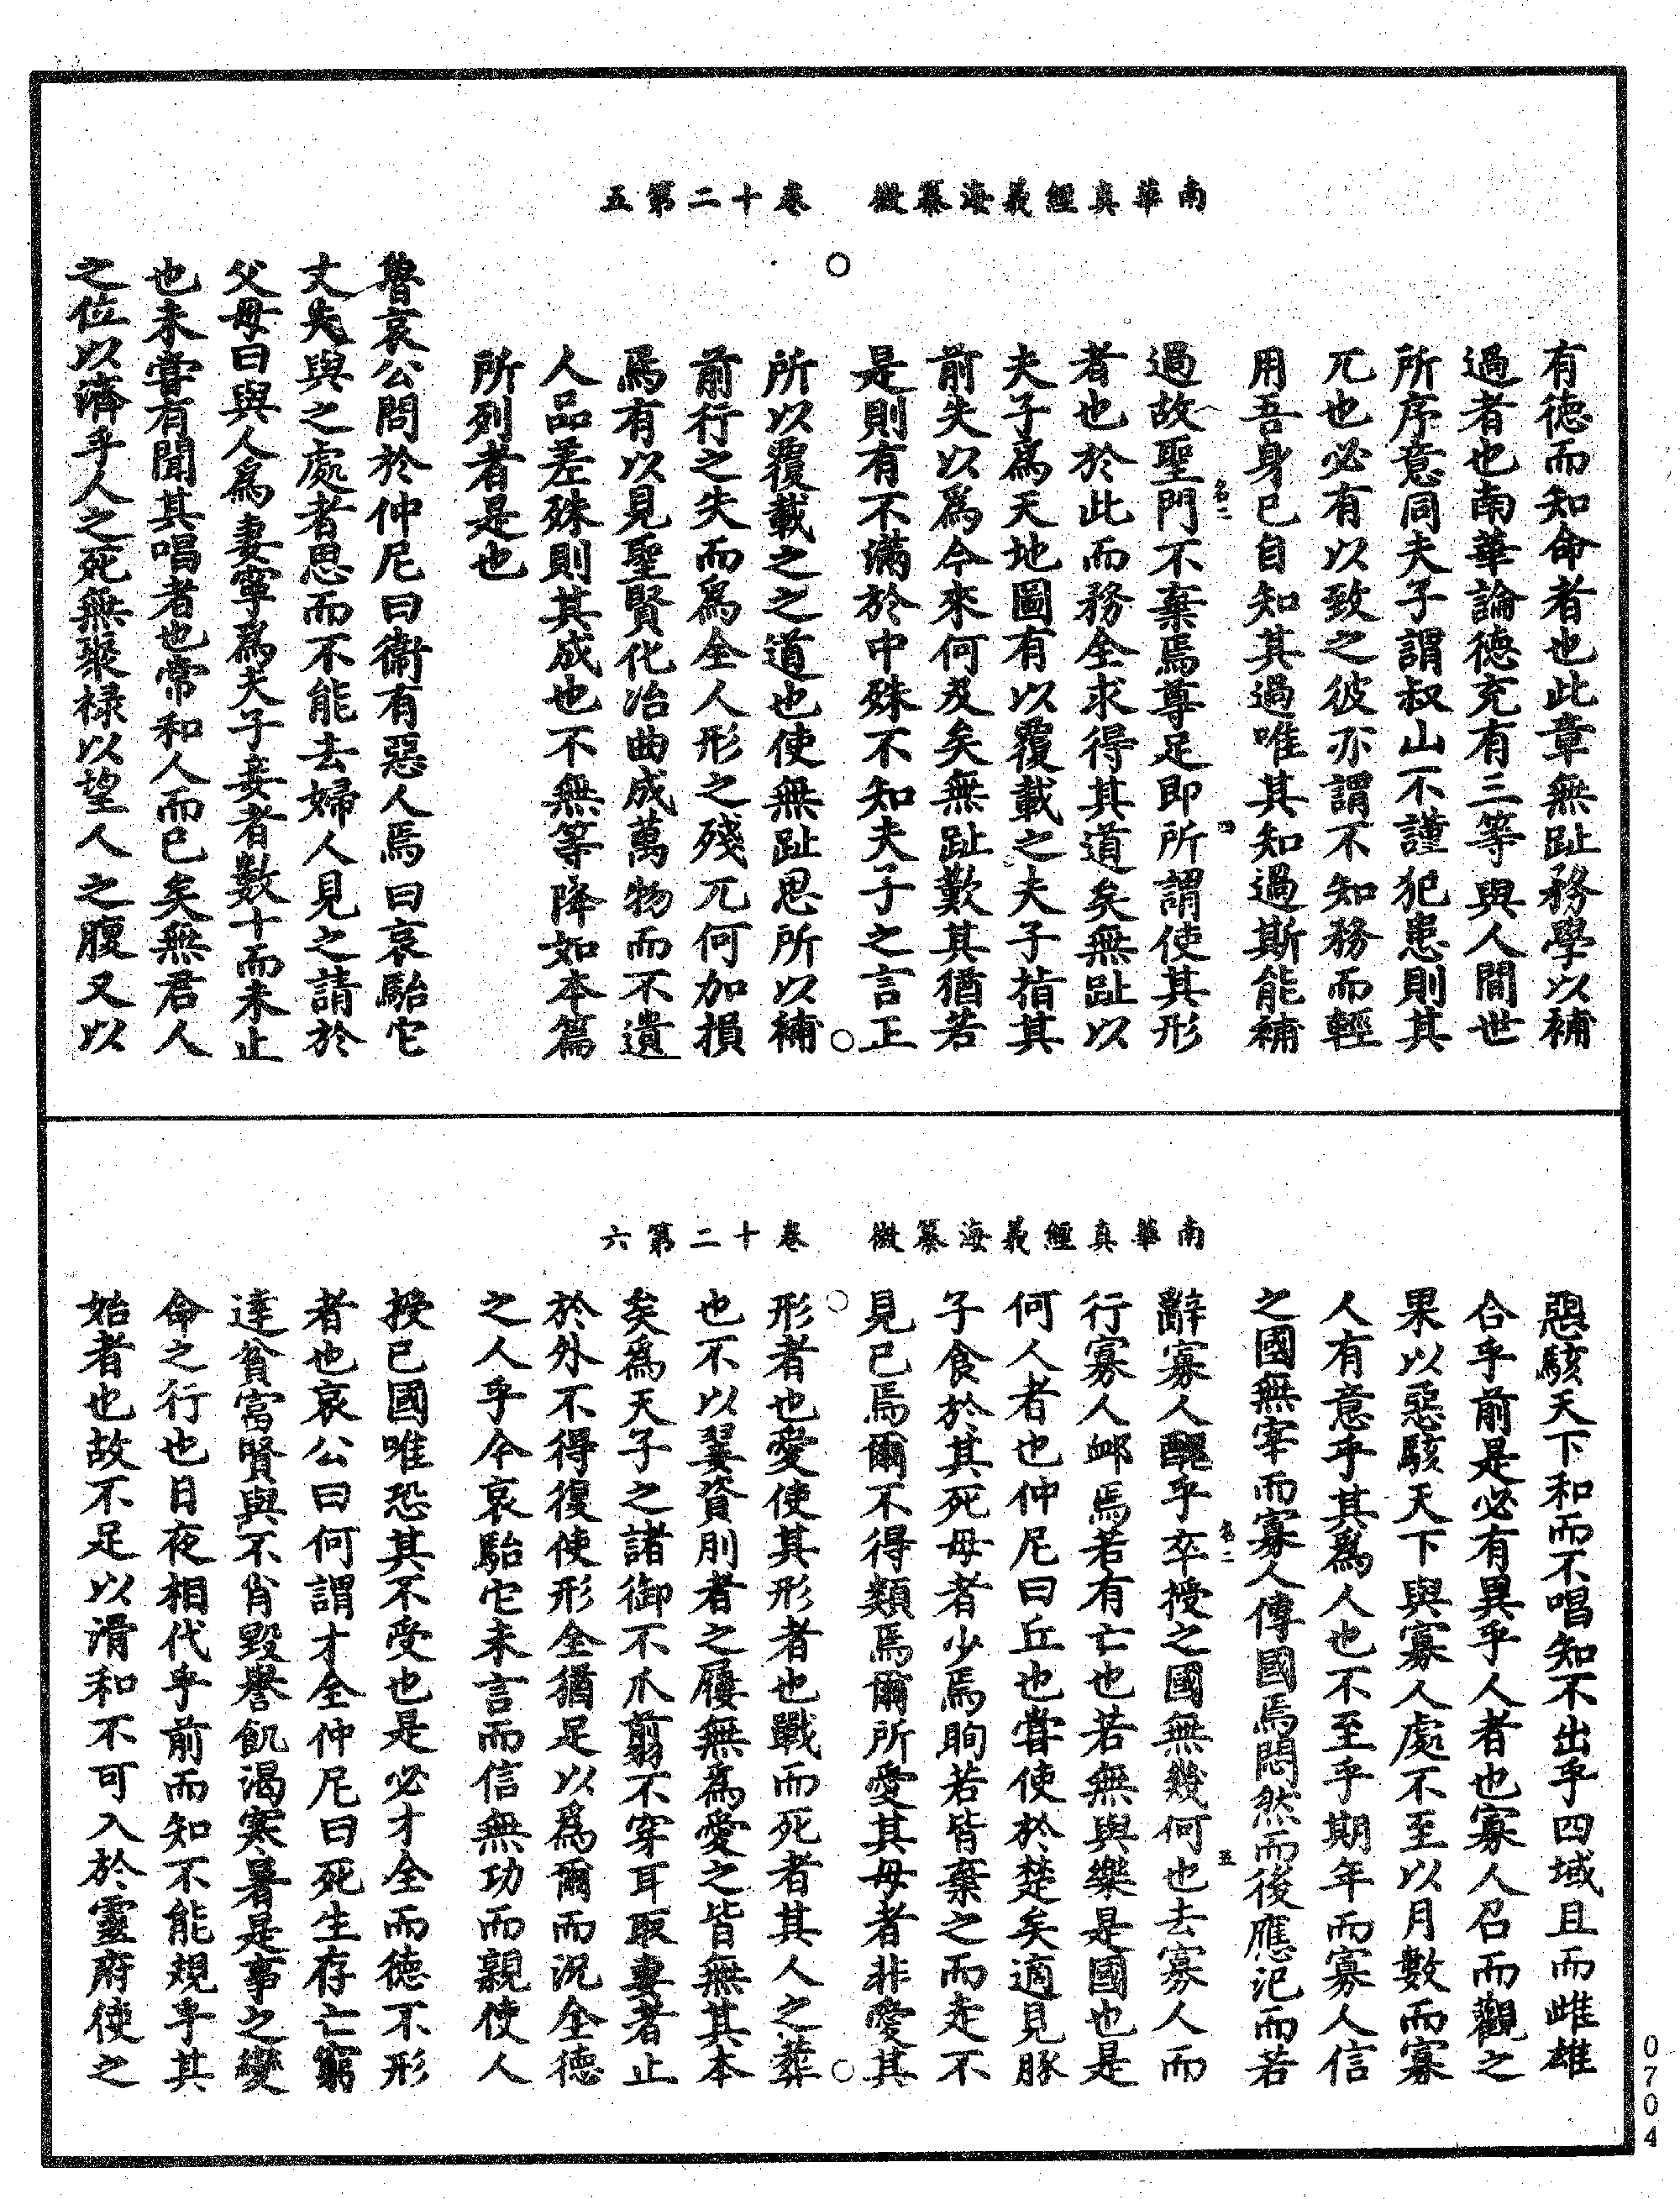 南華真經義海纂微　卷十二第五
有德而知命者也此章無趾務學以補
過者也南華論德充有三等與人間世
所序意同夫子謂叔山不謹犯患則其
兀也必有以致之彼亦謂不知務而輕
用吾身已自知其過唯其知過斯能補
過故聖門不棄焉尊足即所謂使其形
名二　四
者也於此而務全求得其道矣無趾以
夫子為天地圖有以覆載之夫子指其
前失以為今來何及矣無趾歎其猶若
是則有不滿於中殊不知夫子之言正
所以覆載之之道也使無趾思所以補
前行之失而為全人形之殘兀何加損
焉有以見聖賢化冶曲成萬物而不遺
人品差殊則其成也不無等降如本篇
所列者是也
魯哀公問於仲尼曰衞有惡人焉曰哀駘它
丈夫與之處者思而不能去婦人見之請於
父母曰與人為妻寧為夫子妾者數十而未止
也未嘗有聞其唱者也常和人而已矣無君人
之位以濟乎人之死無聚祿以望人之腹又以
南華真經義海纂微　卷十二第六
惡駭天下和而不唱知不出乎四域且而雌雄
合乎前是必有異乎人者也寡人召而觀之
果以惡駭天下與寡人處不至以月數而寡
人有意乎其為人也不至乎期年而寡人信
之國無宰而寡人傳國焉悶然而後應氾而若
辭寡人醜乎卒授之國無幾何也去寡人而
名二　五
行寡人卹焉若有亡也若無與樂是國也是
何人者也仲尼曰丘也嘗使於楚矣適見㹠
子食於其死母者少焉眴若皆棄之而走不
見己焉爾不得類焉爾所愛其母者非愛其
形者也愛使其形者也戰而死者其人之葬
也不以翣資刖者之屨無為愛之皆無其本
矣為天子之諸御不爪翦不穿耳取妻者止
於外不得復使形全猶足以為爾而況全德
之人乎今哀駘它未言而信無功而親使人
授己國唯恐其不受也是必才全而德不形
者也哀公曰何謂才全仲尼曰死生存亡窮
達貧富賢與不肖毀譽飢渴寒暑是事之變
命之行也日夜相代乎前而知不能規乎其
始者也故不足以滑和不可入於靈府使之
0704